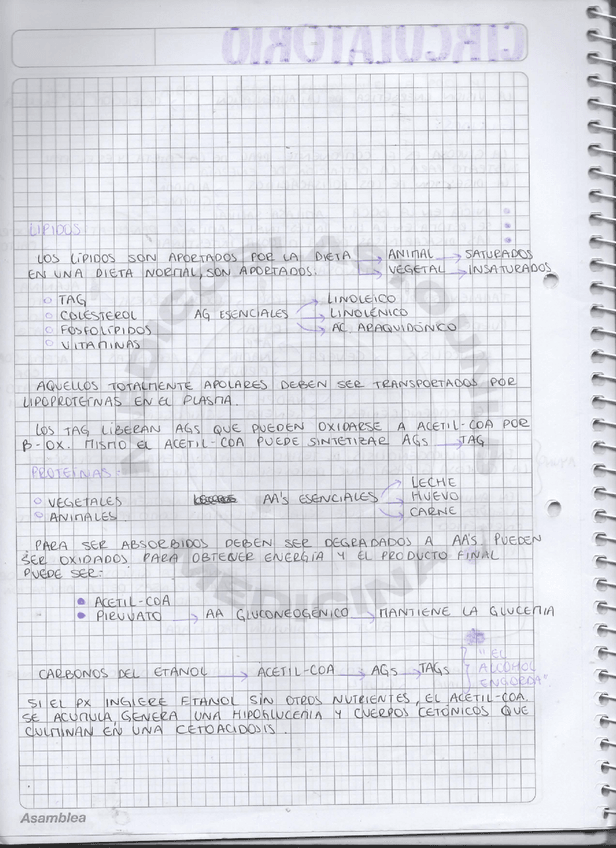 LÍPIDOS:
LOS LÍPIDOS SON APORTADOS POR LA DIETA → ANIMAL → SATURADOS
EN UNA DIETA NORMAL, SON APORTADOS: → VEGETAL → INSATURADOS
○ TAG → LINOLEICO
○ COLESTEROL AG ESENCIALES → LINOLÉNICO
○ FOSFOLÍPIDOS → AC. ARAQUIDÓNICO
○ VITAMINAS
AQUELLOS TOTALMENTE APOLARES DEBEN SER TRANSPORTADOS POR
LIPOPROTEÍNAS EN EL PLASMA.
LOS TAG LIBERAN AGS QUE PUEDEN OXIDARSE A ACETIL-COA POR
B-OX. MISMO EL ACETIL-COA PUEDE SINTETIZAR AGs → TAG
PROTEÍNAS:
→ LECHE
○ VEGETALES AA'S ESENCIALES → HUEVO
○ ANIMALES. → CARNE
PARA SER ABSORBIDOS DEBEN SER DEGRADADOS A AA'S. PUEDEN
SER OXIDADOS PARA OBTENER ENERGÍA Y EL PRODUCTO FINAL
PUEDE SER:
• ACETIL-COA
• PIRUVATO → AA GLUCONEOGÉNICO → MANTIENE LA GLUCEMIA
CARBONOS DEL ETANOL → ACETIL-COA → AGs → TAGs "EL
ALCOHOL
ENGORDA".
SI EL PX INGIERE ETANOL SIN OTROS NUTRIENTES, EL ACETIL-COA
SE ACUMULA, GENERA UNA HIPOGLUCEMIA Y CUERPOS CETÓNICOS QUE
CULMINAN EN UNA CETOACIDOSIS.
Asamblea